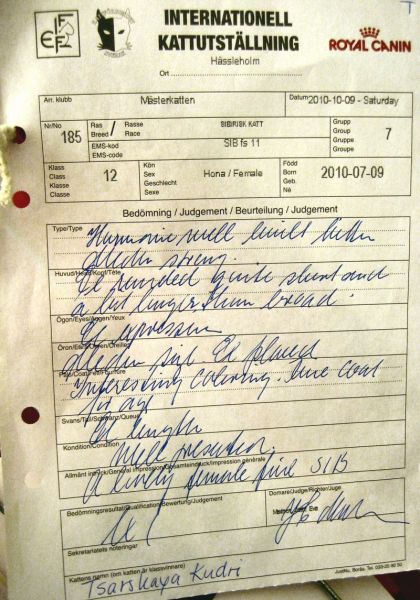 T
FIFe
INTERNATIONELL
KATTUTSTÄLLNING
Hässleholm
Ort
ROYAL CANIN
Arr. klubb
Mästerkatten
Datum 2010-10-09 - Saturday
Nr/No
185
Ras / Rasse
Breed / Race
SIBIRISK KATT
Grupp
Group
Gruppe
Groupe
7
EMS-kod
EMS-code
SIB fs 11
Klass
Class
Klasse
Classe
12
Kön
Sex
Geschlecht
Sexe
Hona / Female
Född
Born
Geb.
Né
2010-07-09
Bedömning / Judgement / Beurteilung / Judgement
Type/Type
Harmonic well built kitten
Medium strong.
Huvud/Head/Kopf/Tête
El rounded quite short and
a bit longer than broad.
Ögon/Eyes/Augen/Yeux
El expression
Öron/Ears/Ohren/Oreilles
Medium size. El placed
Interesting coloring. Fine coat
for age
Svans/Tail/Schwanz/Queue
El length
Kondition/Condition
Well presented.
Allmänt intryck/General impression/Gesamteindruck/Impression générale
A lovely female fine SIB
Bedömningsresultat/Qualification/Bewertung/Judgement
Domare/Judge/Richter/Juge
Eva
Ex 1
Sekretariatets noteringar
Kattens namn (om katten är klassvinnare)
Tsarskaya Kudri